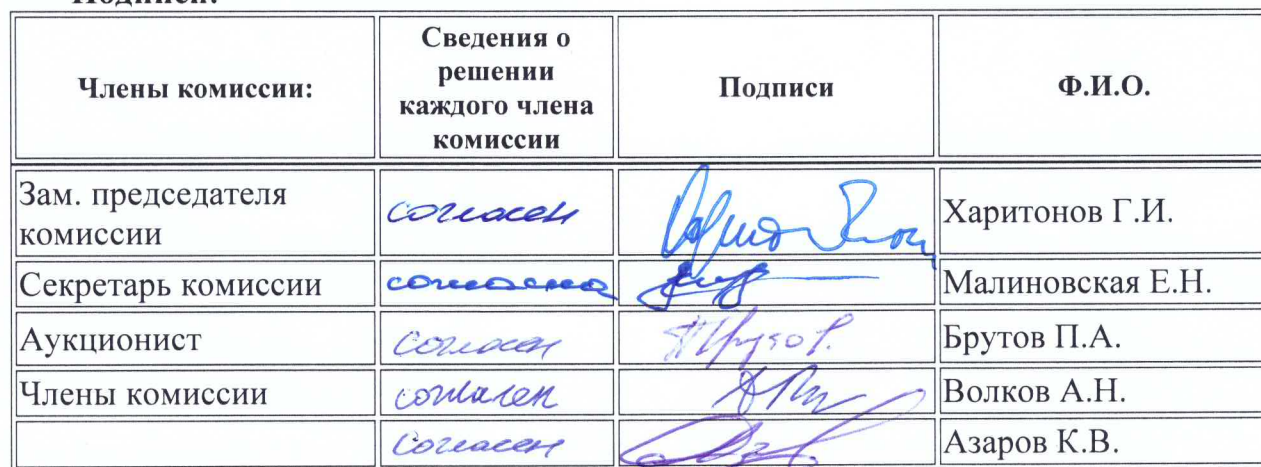 Подписи:
Члены комиссии:
Сведения о
решении
каждого члена
комиссии
Подписи
Ф.И.О.
Зам. председателя
комиссии
согласен
Харитонов Г.И.
Секретарь комиссии
согласна
Малиновская Е.Н.
Аукционист
согласен
Брутов П.А.
Члены комиссии
согласен
Волков А.Н.
Согласен
Азаров К.В.